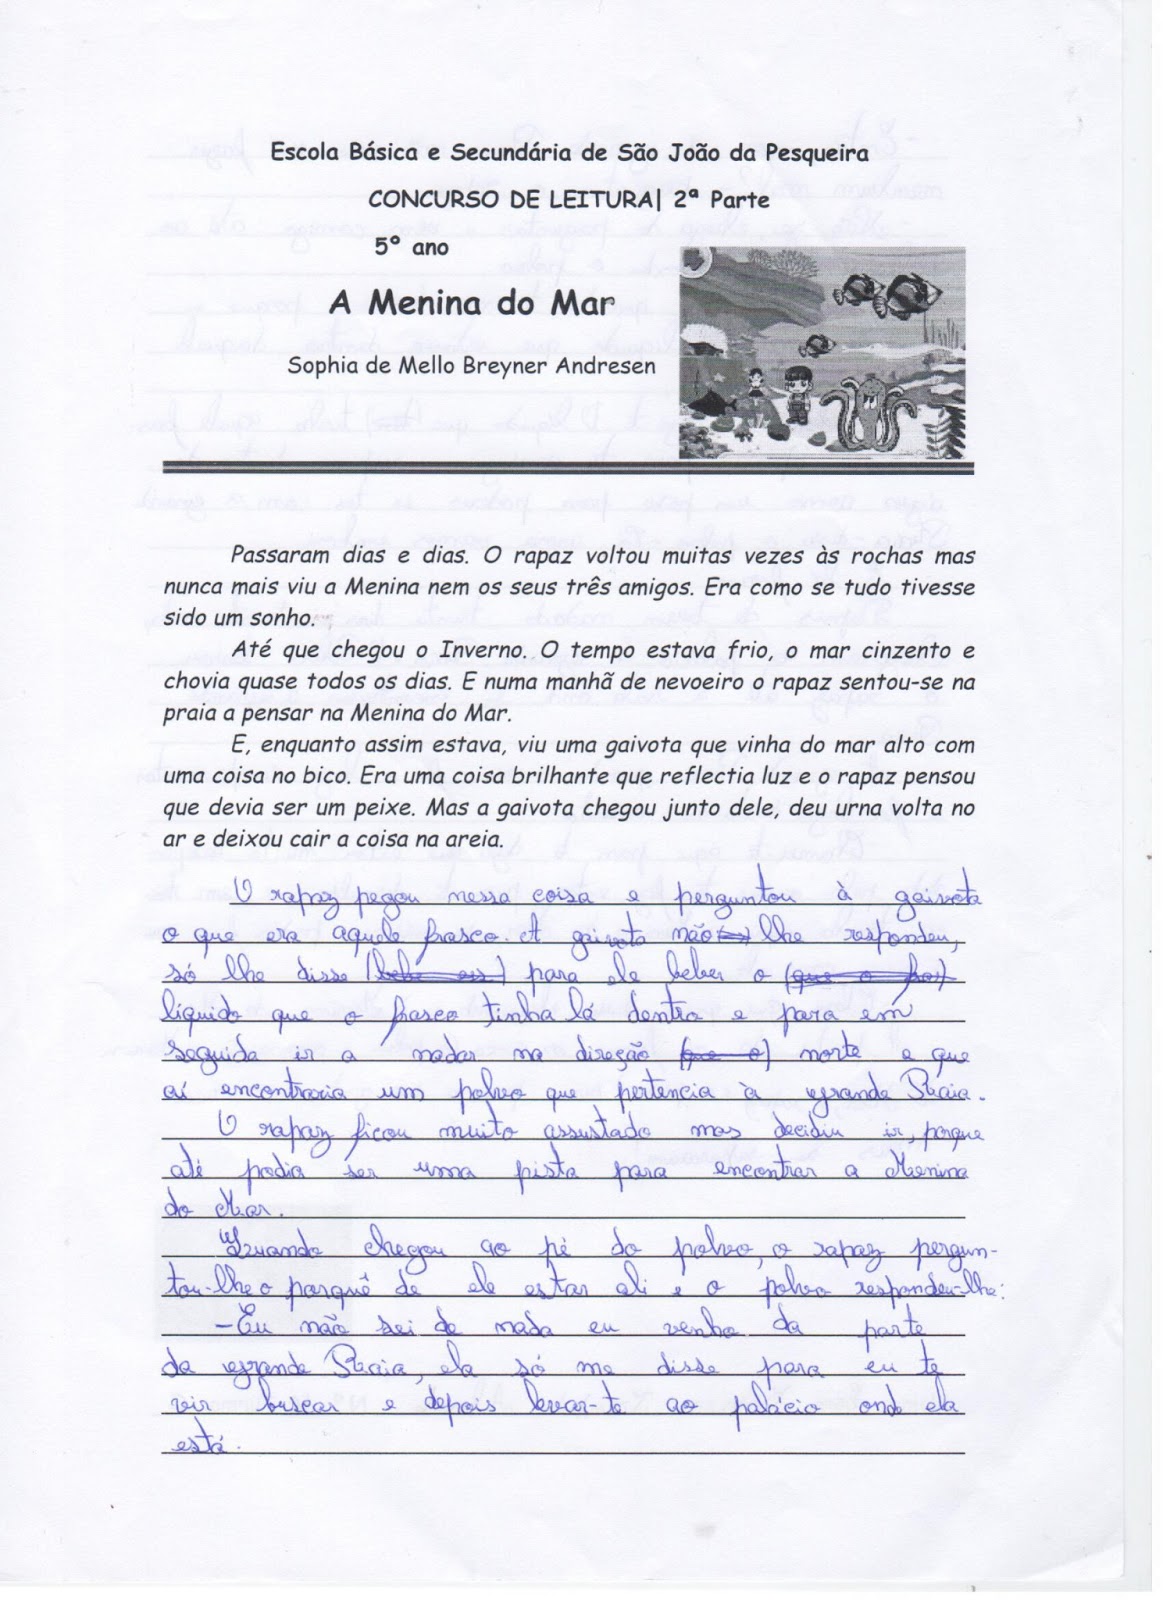 Escola Básica e Secundária de São João da Pesqueira
CONCURSO DE LEITURA| 2ª Parte
5º ano
A Menina do Mar
Sophia de Mello Breyner Andresen
Passaram dias e dias. O rapaz voltou muitas vezes às rochas mas
nunca mais viu a Menina nem os seus três amigos. Era como se tudo tivesse
sido um sonho.
Até que chegou o Inverno. O tempo estava frio, o mar cinzento e
chovia quase todos os dias. E numa manhã de nevoeiro o rapaz sentou-se na
praia a pensar na Menina do Mar.
E, enquanto assim estava, viu uma gaivota que vinha do mar alto com
uma coisa no bico. Era uma coisa brilhante que reflectia luz e o rapaz pensou
que devia ser um peixe. Mas a gaivota chegou junto dele, deu urna volta no
ar e deixou cair a coisa na areia.
O rapaz pegou nessa coisa e perguntou à gaivota
o que era aquele frasco. A gaivota não lhe respondeu,
só lhe disse para ele beber o
líquido que o frasco tinha lá dentro e para em
seguida ir a nadar na direção norte e que
aí encontraria um polvo que pertencia à grande Raia.
O rapaz ficou muito assustado mas decidiu ir, porque
até podia ser uma pista para encontrar a Menina
do Mar.
Quando chegou ao pé do polvo, o rapaz pergun-
tou-lhe o porquê de ele estar ali e o polvo respondeu-lhe:
-Eu não sei de nada eu venho da parte
da grande Raia, ela só me disse para eu te
vir buscar e depois levar-te ao palácio onde ela
está.